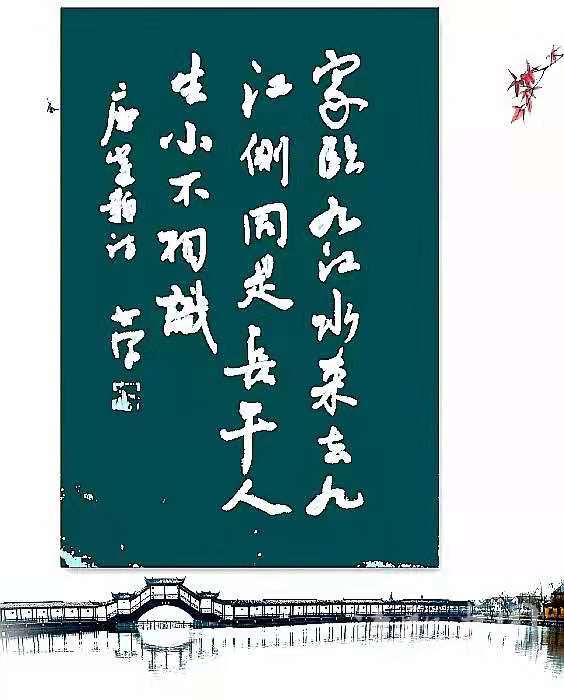 家臨九江水来去九
江側同是長干人
生小不相識
唐崔颢诗